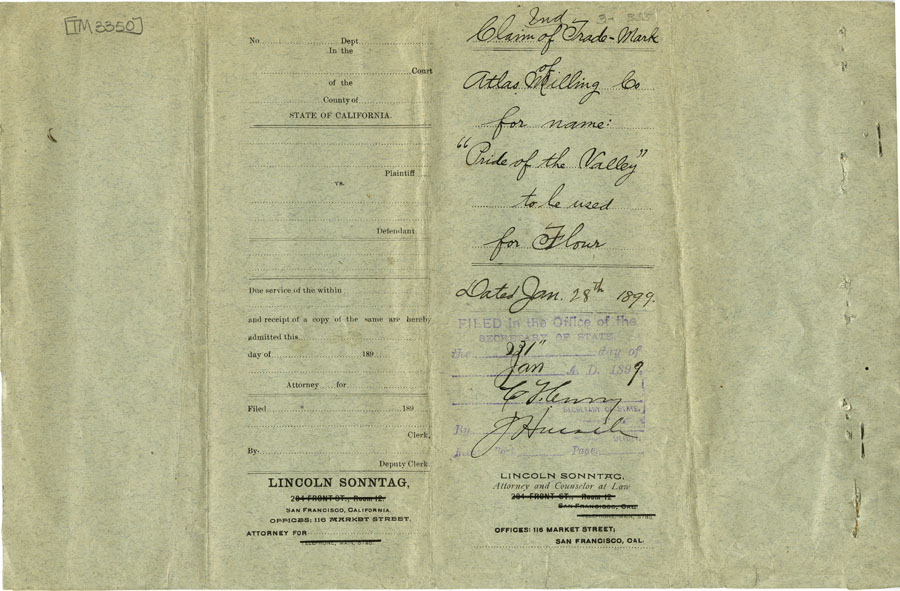 [TM 3350]
No. Dept.
In the
Court
of the
County of
STATE OF CALIFORNIA.
Plaintiff
vs.
Defendant
Due service of the within
and receipt of a copy of the same are hereby
admitted this
day of 189
Attorney for
Filed 189
Clerk.
By
Deputy Clerk.
LINCOLN SONNTAG,
204 FRONT ST., Room 12.
SAN FRANCISCO, CALIFORNIA.
OFFICES: 116 MARKET STREET.
ATTORNEY FOR
2nd
Claim of Trade-Mark
of
Atlas Milling Co
for name:
"Pride of the Valley"
to be used
for Flour
Dated Jan. 28th 1899.
FILED in the Office of the
SECRETARY OF STATE
the 31st day of
Jan A. D. 1899
C F Curry
SECRETARY OF STATE
By
Book Page
LINCOLN SONNTAG,
Attorney and Counselor at Law
204 FRONT ST., Room 12
SAN FRANCISCO, CAL.
OFFICES: 116 MARKET STREET;
SAN FRANCISCO, CAL.